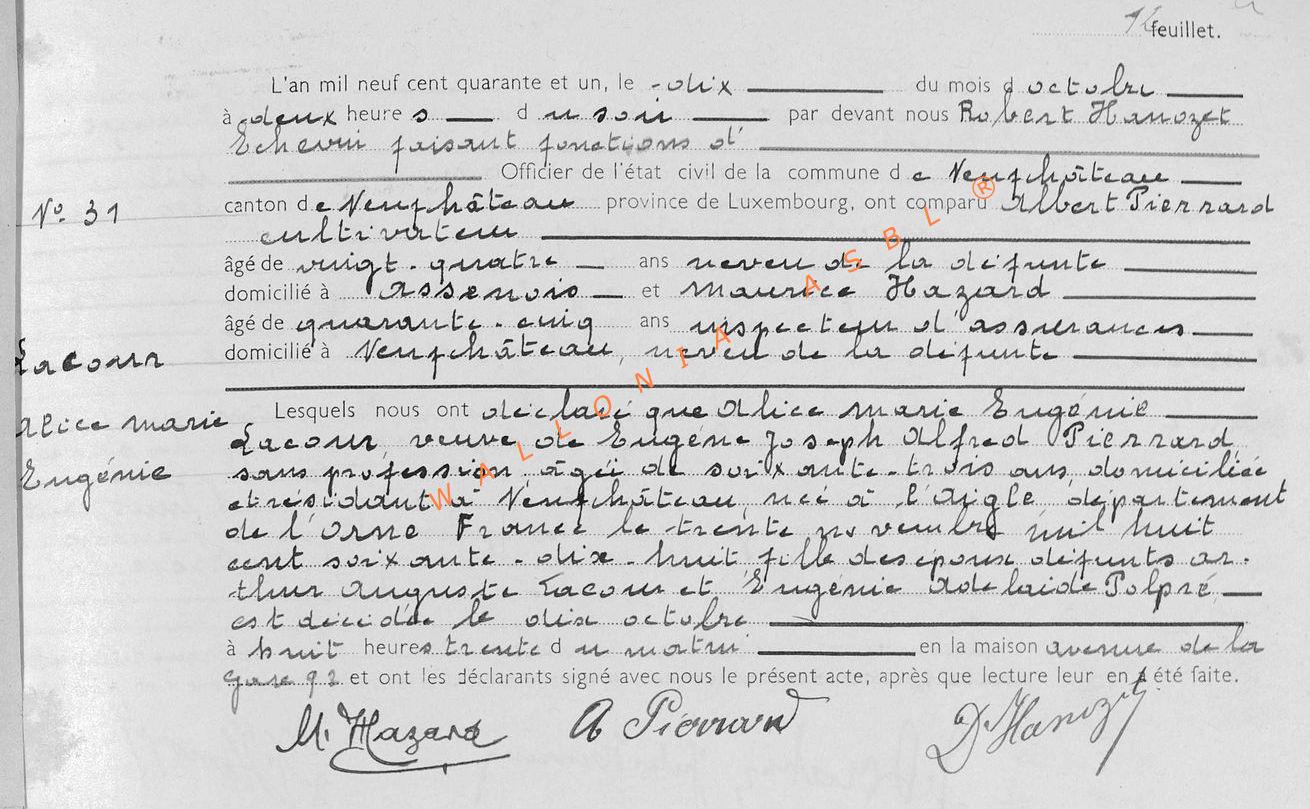 feuillet.
L'an mil neuf cent quarante et un, le dix du mois d octobre
à deux heure s d u soir par devant nous Robert Hanozet
Echevin faisant fonctions d'
Officier de l'état civil de la commune d e Neufchâteau
N° 31
canton d e Neufchâteau province de Luxembourg, ont comparu Albert Pierrard
cultivateur
âgé de vingt-quatre ans neveu de la défunte
domicilié à Assenois et Maurice Hazard
âgé de quarante-cinq ans inspecteur d'assurances
domicilié à Neufchâteau, neveu de la défunte
Lacour
Alice Marie
Eugénie
Lesquels nous ont déclaré que Alice Marie Eugénie
Lacour, veuve de Eugène Joseph Alfred Pierrard
sans profession, âgée de soixante-trois ans, domiciliée
et résidant à Neufchâteau, née à l'Aigle, département
de l'Orne France le trente novembre mil huit
cent soixante-dix-huit fille des époux défunts Ar-
thur Auguste Lacour et Eugénie Adelaide Polpré,
est décédée le dix octobre
à huit heures trente d u matin en la maison avenue de la
gare 92 et ont les déclarants signé avec nous le présent acte, après que lecture leur en a été faite.
M. Hazard A Pierrard Dr Hanozet
WALLONIA ASBL ®